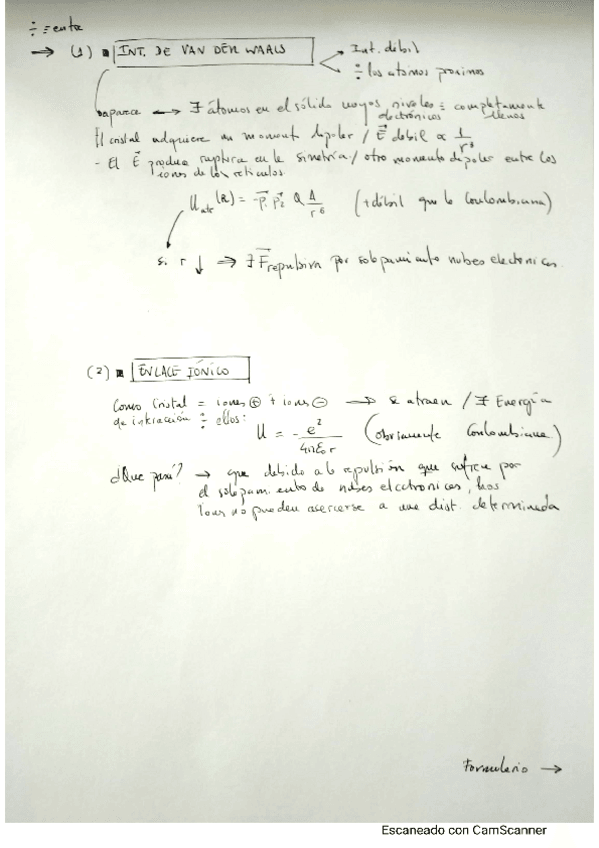 ÷ = entre
→ (1) ▪ INT. DE VAN DER WAALS → Int. débil
→ ÷ los átomos próximos
aparece → ∃ átomos en el sólido cuyos niveles electrónicos = completamente llenos
El cristal adquiere un momento dipolar / E⃗ débil ∝ 1/r³
- El E⃗ produce ruptura en la simetría / otro momento dipolar entre los
iones de los retículos.
U_atr (R) = -p⃗₁ p⃗₂ α A/r⁶ (+ débil que la Coulombiana)
si r ↓ ⇒ ∃ F⃗ repulsiva por solapamiento nubes electronicas.
(2) ▪ ENLACE IÓNICO
Como Cristal = iones ⊕ + iones ⊖ → se atraen / ∃ Energía
de interacción ÷ ellos:
U = - e²/4πε₀r (obviamente Coulombiana)
¿Que pasa? → que debido a la repulsión que sufren por
el solapamiento de nubes electronicas, los
iones no pueden acercarse a una dist. determinada
Formulario →
Escaneado con CamScanner